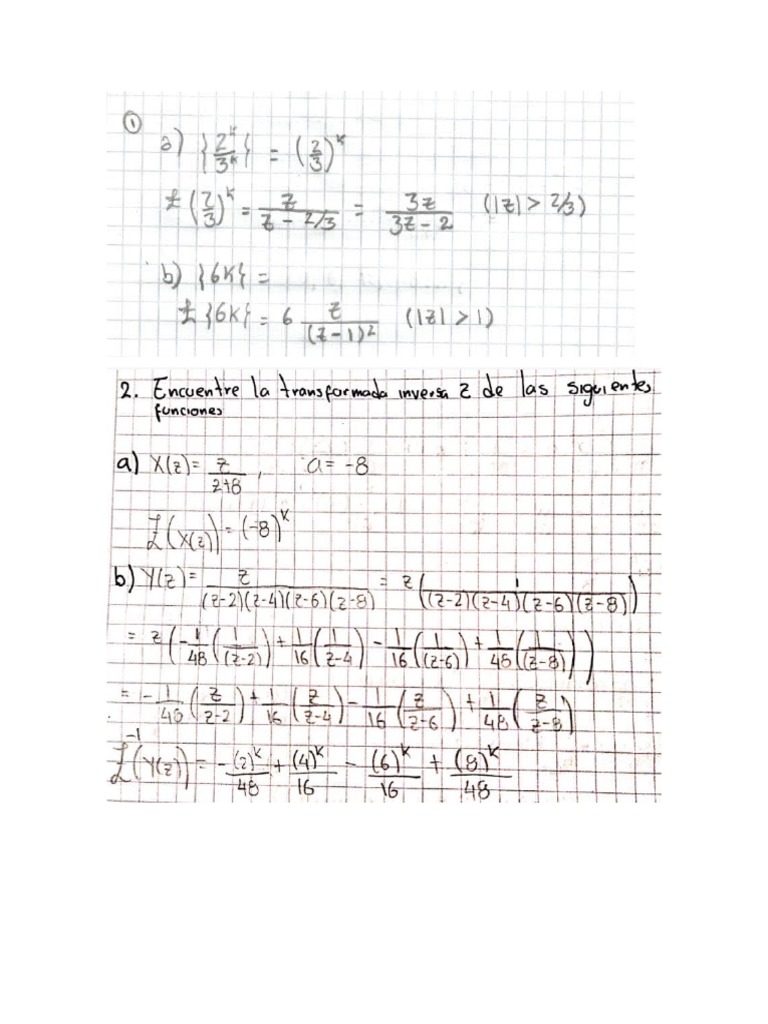 ①
a) {2^k/3^k} = (2/3)^k
Ƶ(2/3)^k = z/(z - 2/3) = 3z/(3z - 2) (|z| > 2/3)
b) {6k} =
Ƶ{6k} = 6 z/(z-1)^2 (|z| > 1)
2. Encuentre la transformada inversa z de las siguientes
funciones
a) X(z) = z/(z+8), a = -8
Ƶ(X(z)) = (-8)^k
b) Y(z) = z/((z-2)(z-4)(z-6)(z-8)) = z(1/((z-2)(z-4)(z-6)(z-8)))
= z(-1/48(1/(z-2)) + 1/16(1/(z-4)) - 1/16(1/(z-6)) + 1/48(1/(z-8)))
= -1/48(z/(z-2)) + 1/16(z/(z-4)) - 1/16(z/(z-6)) + 1/48(z/(z-8))
Ƶ^-1(Y(z)) = -(2)^k/48 + (4)^k/16 - (6)^k/16 + (8)^k/48